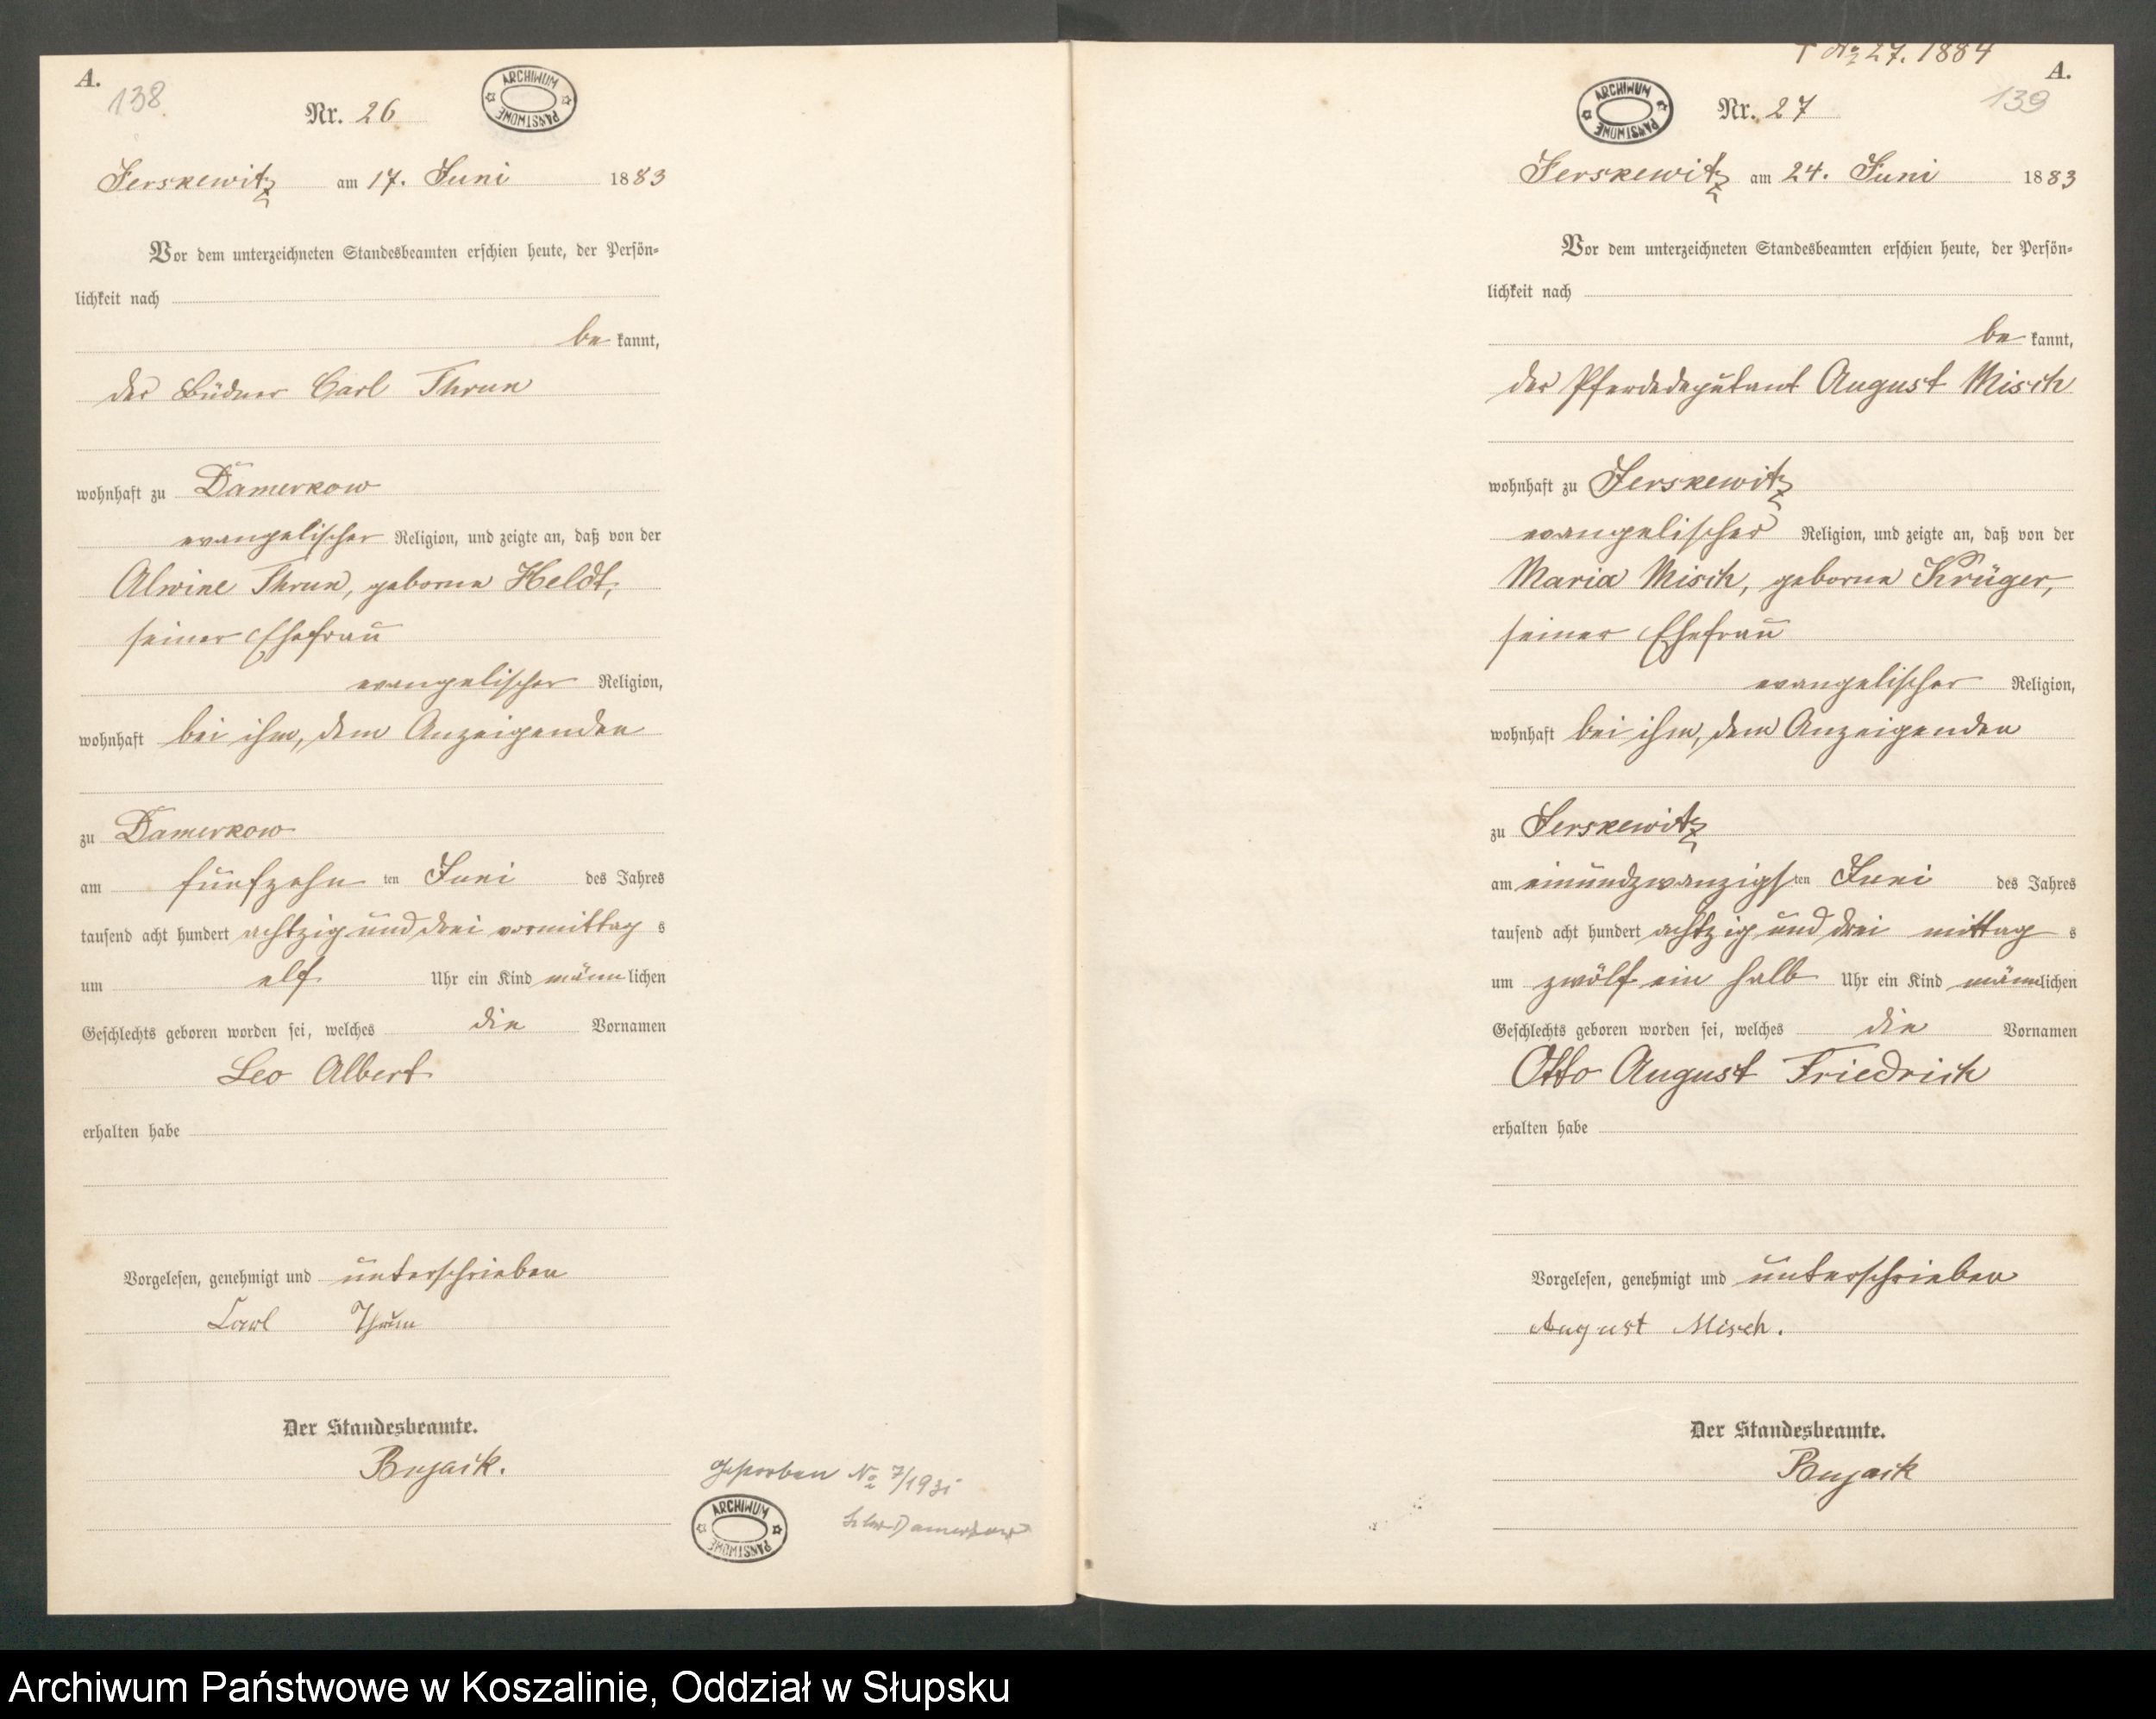 A.
138
Nr. 26
ARCHIWUM PAŃSTWOWE
Jerskewitz am 17. Juni 1883
Vor dem unterzeichneten Standesbeamten erschien heute, der Persön-
lichkeit nach
be kannt,
der Büdner Carl Thrun
wohnhaft zu Damerkow
evangelischer Religion, und zeigte an, daß von der
Alwine Thrun, geborne Heldt,
seiner Ehefrau
evangelischer Religion,
wohnhaft bei ihm, dem Anzeigenden
zu Damerkow
am fünfzehn ten Juni des Jahres
tausend acht hundert achtzig und drei vormittag s
um elf Uhr ein Kind männ lichen
Geschlechts geboren worden sei, welches die Vornamen
Leo Albert
erhalten habe
Vorgelesen, genehmigt und unterschrieben
Carl Thrun
Der Standesbeamte.
Bujack.
Gestorben No 7/1931
Damerkow
ARCHIWUM PAŃSTWOWE
† No 27. 1884
A.
139
ARCHIWUM PAŃSTWOWE
Nr. 27
Jerskewitz am 24. Juni 1883
Vor dem unterzeichneten Standesbeamten erschien heute, der Persön-
lichkeit nach
be kannt,
der Pferdedeputant August Misch
wohnhaft zu Jerskewitz
evangelischer Religion, und zeigte an, daß von der
Maria Misch, geborne Krüger,
seiner Ehefrau
evangelischer Religion,
wohnhaft bei ihm, dem Anzeigenden
zu Jerskewitz
am einundzwanzigs ten Juni des Jahres
tausend acht hundert achtzig und drei mittag s
um zwölf ein halb Uhr ein Kind männ lichen
Geschlechts geboren worden sei, welches die Vornamen
Otto August Friedrich
erhalten habe
Vorgelesen, genehmigt und unterschrieben
August Misch.
Der Standesbeamte.
Bujack
Archiwum Państwowe w Koszalinie, Oddział w Słupsku